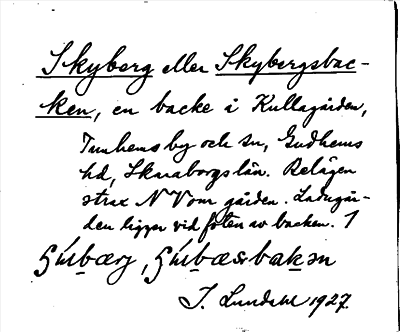 Skyberg eller Skybergsbac-
ken, en backe i Kullagården,
by och sn, Gudhems
hd, Skaraborgs län. Belägen
strax NV om gården. Ladugår-
den ligger vid foten av backen. 1
J. Lundahl 1927.